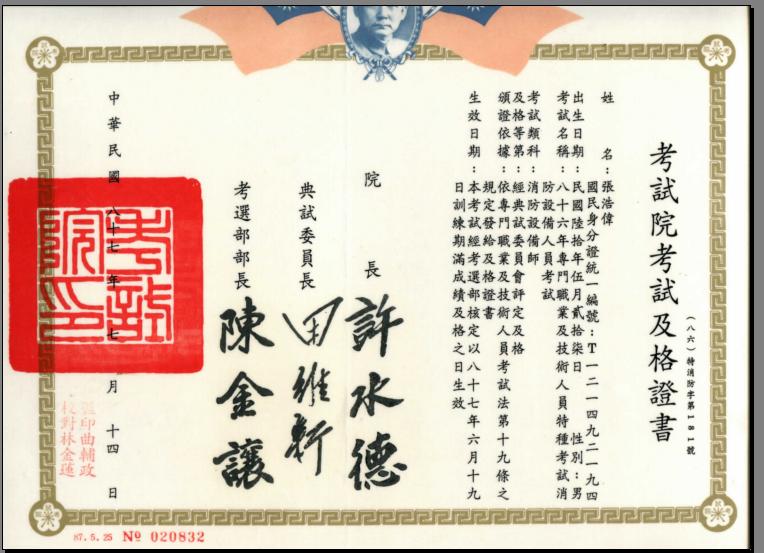 考試院考試及格證書
(八六)特消防字第181號
姓 名:張浩偉
國民身分證統一編號:T一二一四九二一九四
出生日期:民國陸拾年伍月貳拾柒日 性別:男
考試名稱:八十六年專門職業及技術人員特種考試消
防設備人員考試
考試類科:消防設備師
及格等第:經典試委員會評定及格
頒證依據:依專門職業及技術人員考試法第十九條之
規定發給及格證書
生效日期:本考試經考選部核定以八十七年六月十九
日訓練期滿成績及格之日生效
院 長 許水德
典試委員長 田維
考選部部長 陳金讓
中華民國八十七年七月十四日
考試院印
監印曲輔政
校對林金蓮
87.5.25 № 020832